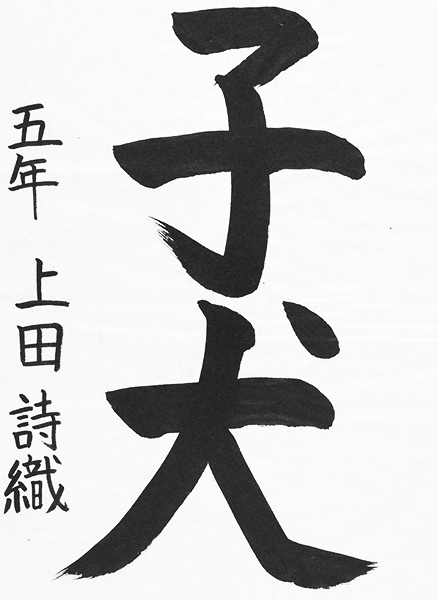 子犬
五年 上田 詩織